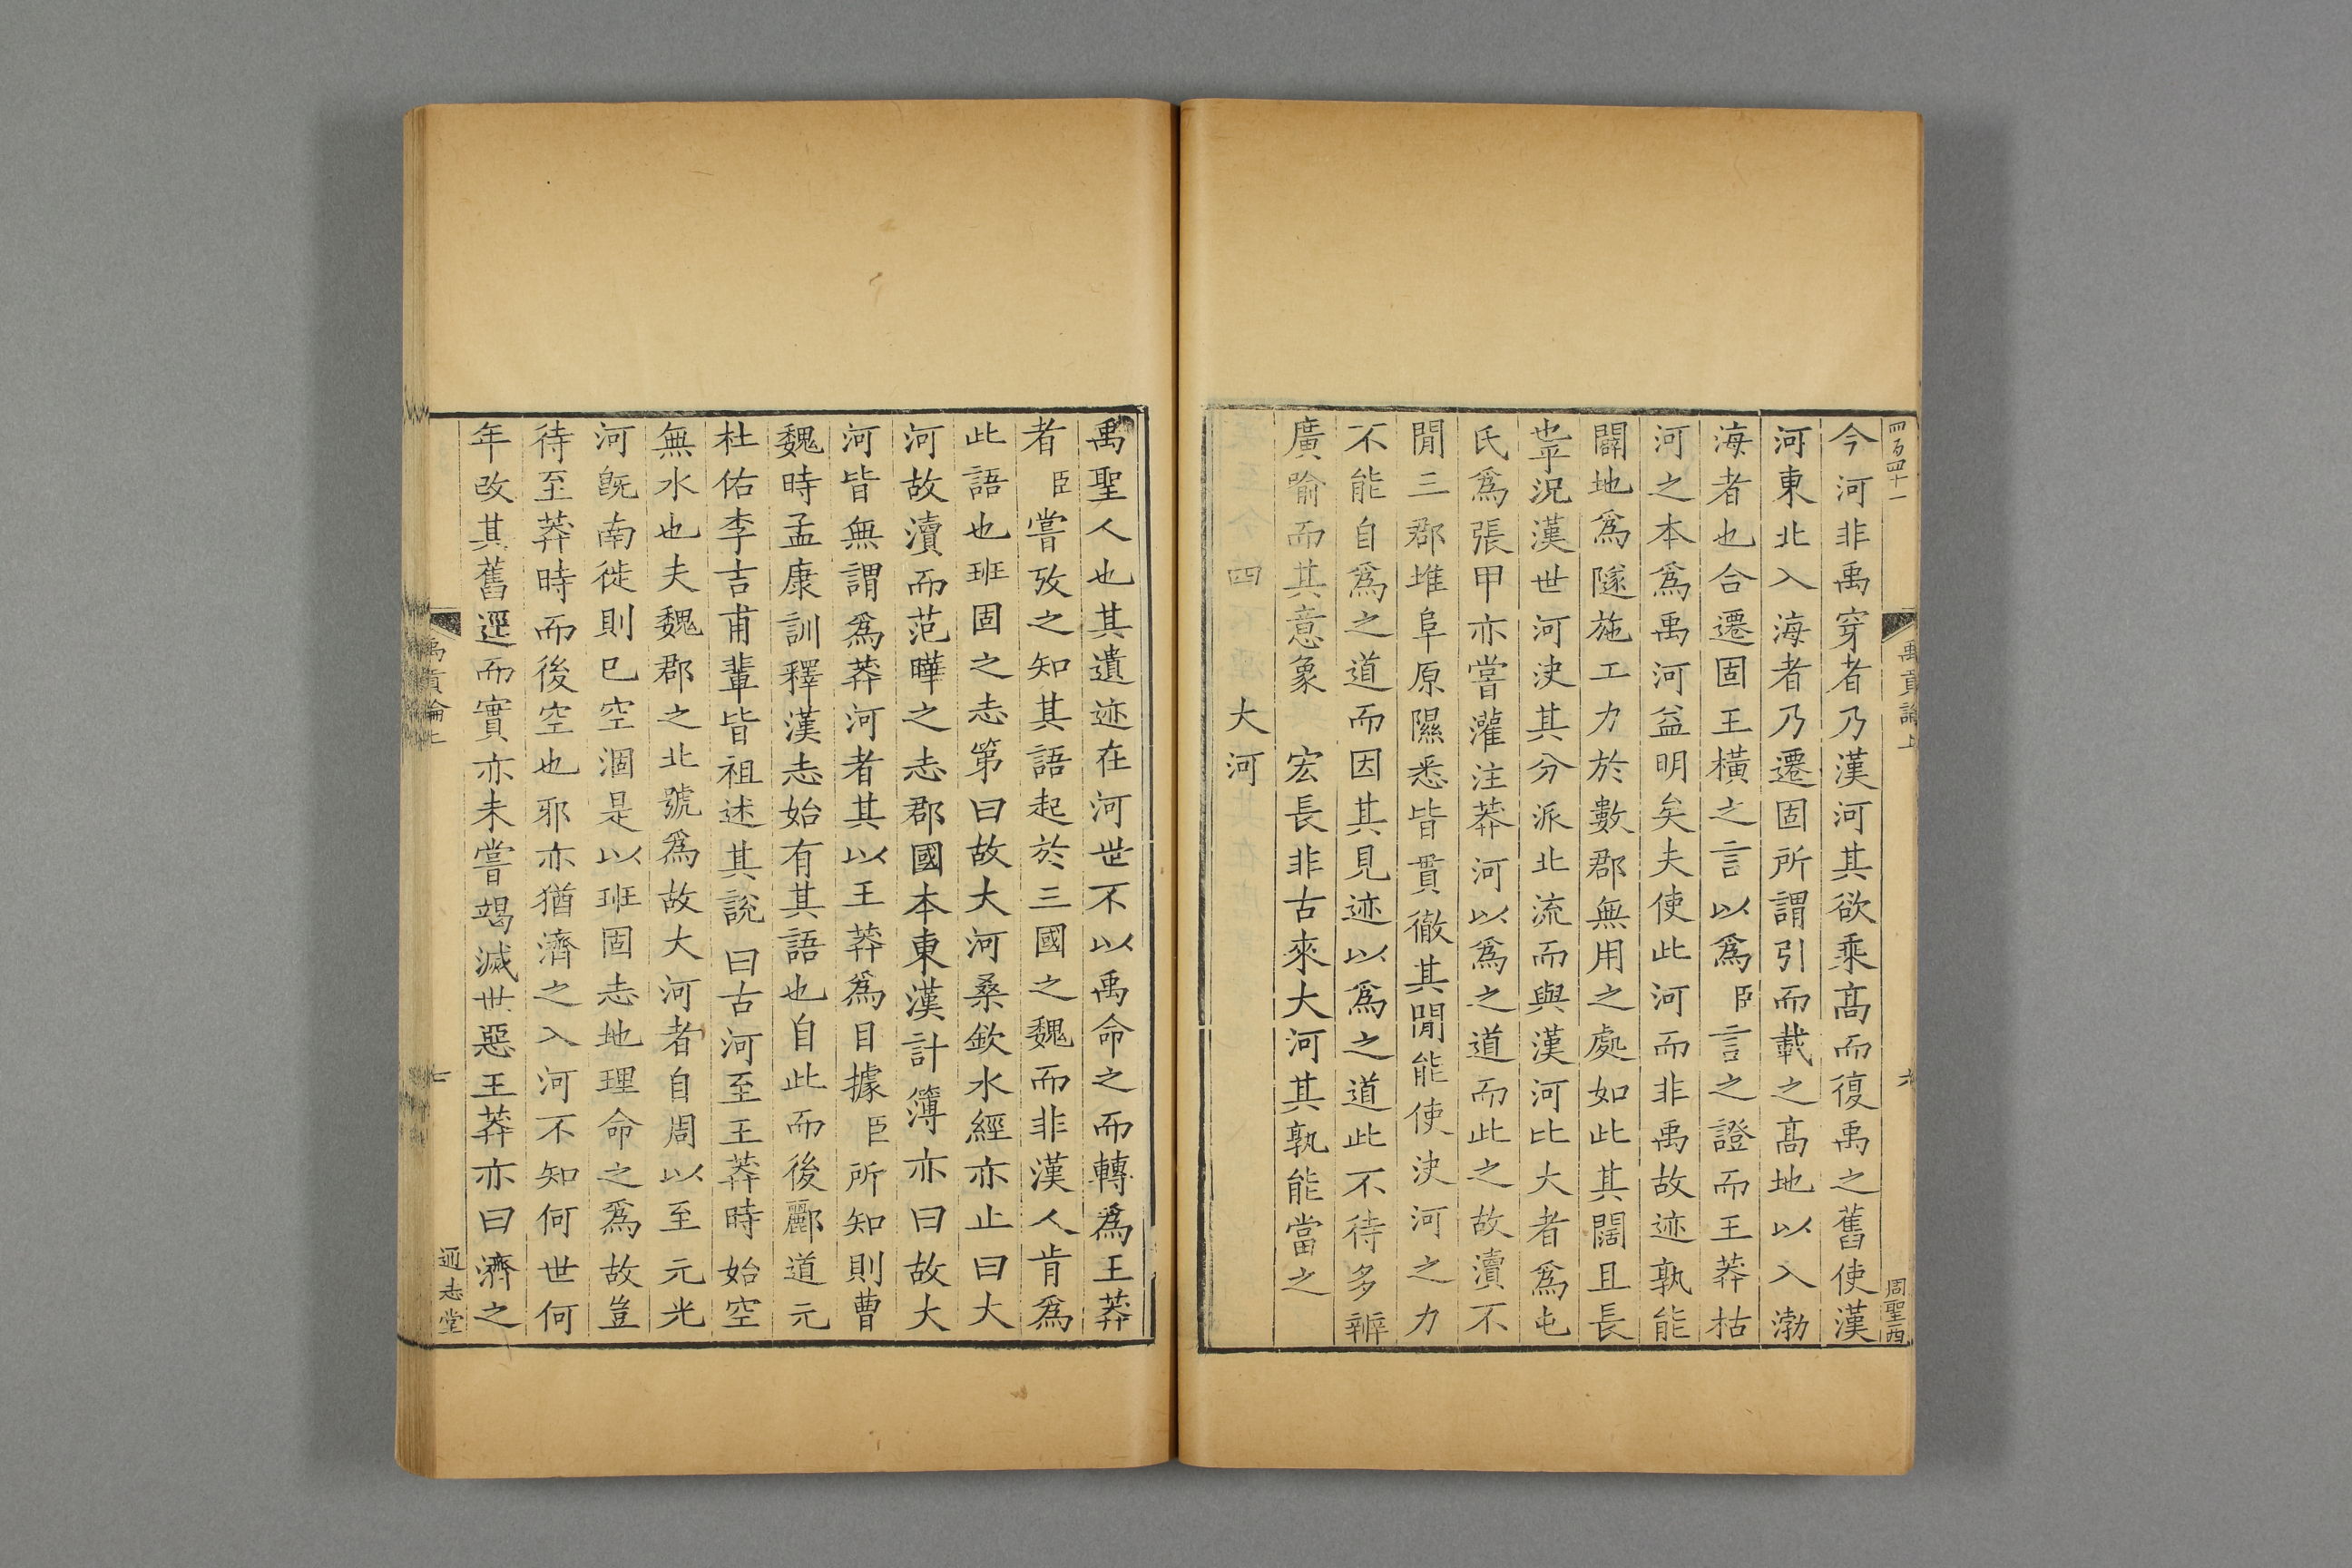 四百四十一
禹貢論上
六
周聖西
今河非禹穿者乃漢河其欲乘高而復禹之舊使漢
河東北入海者乃遷固所謂引而載之高地以入渤
海者也合遷固王橫之言以爲臣言之證而王莽枯
河之本爲禹河益明矣夫使此河而非禹故迹孰能
闢地爲隧施工力於數郡無用之處如此其闊且長
也乎況漢世河決其分派北流而與漢河比大者爲屯
氏爲張甲亦嘗灌注莽河以爲之道而此之故瀆不
閒三郡堆阜原隰悉皆貫徹其閒能使決河之力
不能自爲之道而因其見迹以爲之道此不待多辨
廣喻而其意象 宏長非古來大河其孰能當之
四 大河
禹聖人也其遺迹在河世不以禹命之而轉爲王莽
者臣嘗攷之知其語起於三國之魏而非漢人肯爲
此語也班固之志第曰故大河桑欽水經亦止曰大
河故瀆而范曄之志郡國本東漢計簿亦曰故大
河皆無謂爲莽河者其以王莽爲目據臣所知則曹
魏時孟康訓釋漢志始有其語也自此而後酈道元
杜佑李吉甫輩皆祖述其說曰古河至王莽時始空
無水也夫魏郡之北號爲故大河者自周以至元光
河旣南徙則已空涸是以班固志地理命之爲故豈
待至莽時而後空也邪亦猶濟之入河不知何世何
年改其舊逕而實亦未嘗竭滅世惡王莽亦曰濟之
禹貢論上
七
通志堂